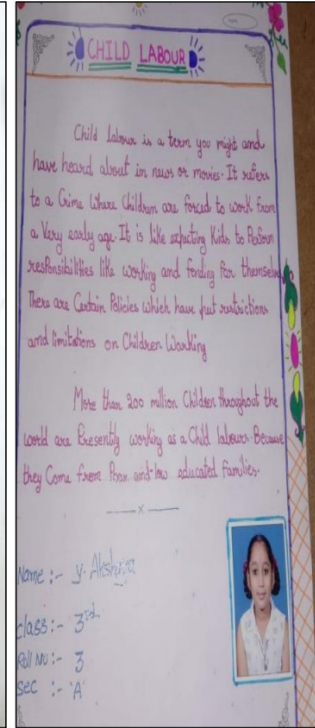 CHILD LABOUR
Child labour is a term you might and
have heard about in news or movies. It refers
to a Crime Where Children are forced to work from
a Very early age. It is like expecting Kids to Perform
responsibilities like working and fending for themselves
There are Certain Policies which have put restrictions
and limitations on Children Working
More than 200 million Children throughout the
world are Presently working as a Child labours Because
they Come from Poor and low educated families.
x
Name :- Y. Akshaya
Class :- 3rd
Roll No :- 3
Sec :- 'A'